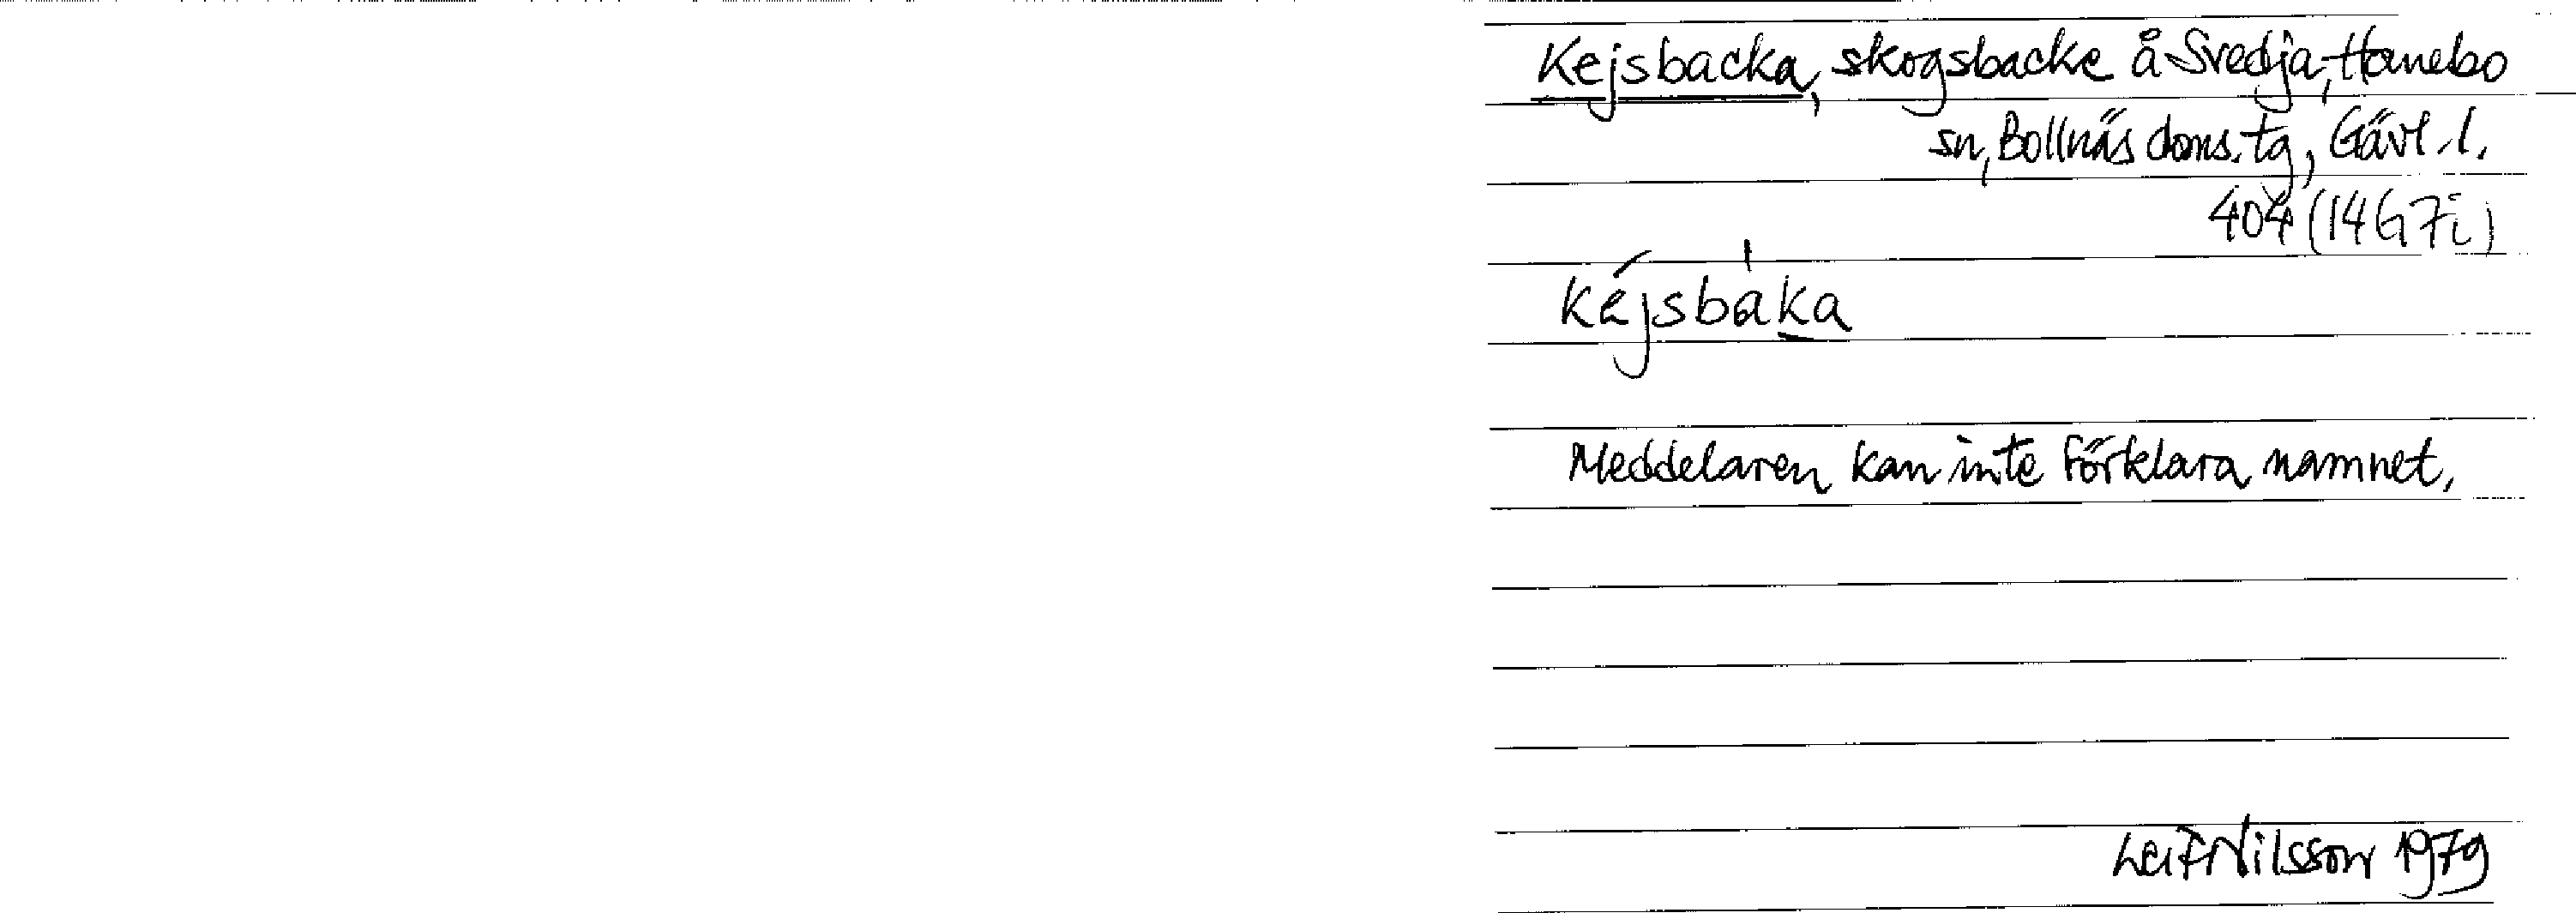 Kejsbacka, skogsbacke å Svedja, Hanebo
sn, Bollnäs doms. tg, Gävl. l.
404 (14G7i)
kéjsbàka
Meddelaren kan inte förklara namnet.
Leif Nilsson 1979